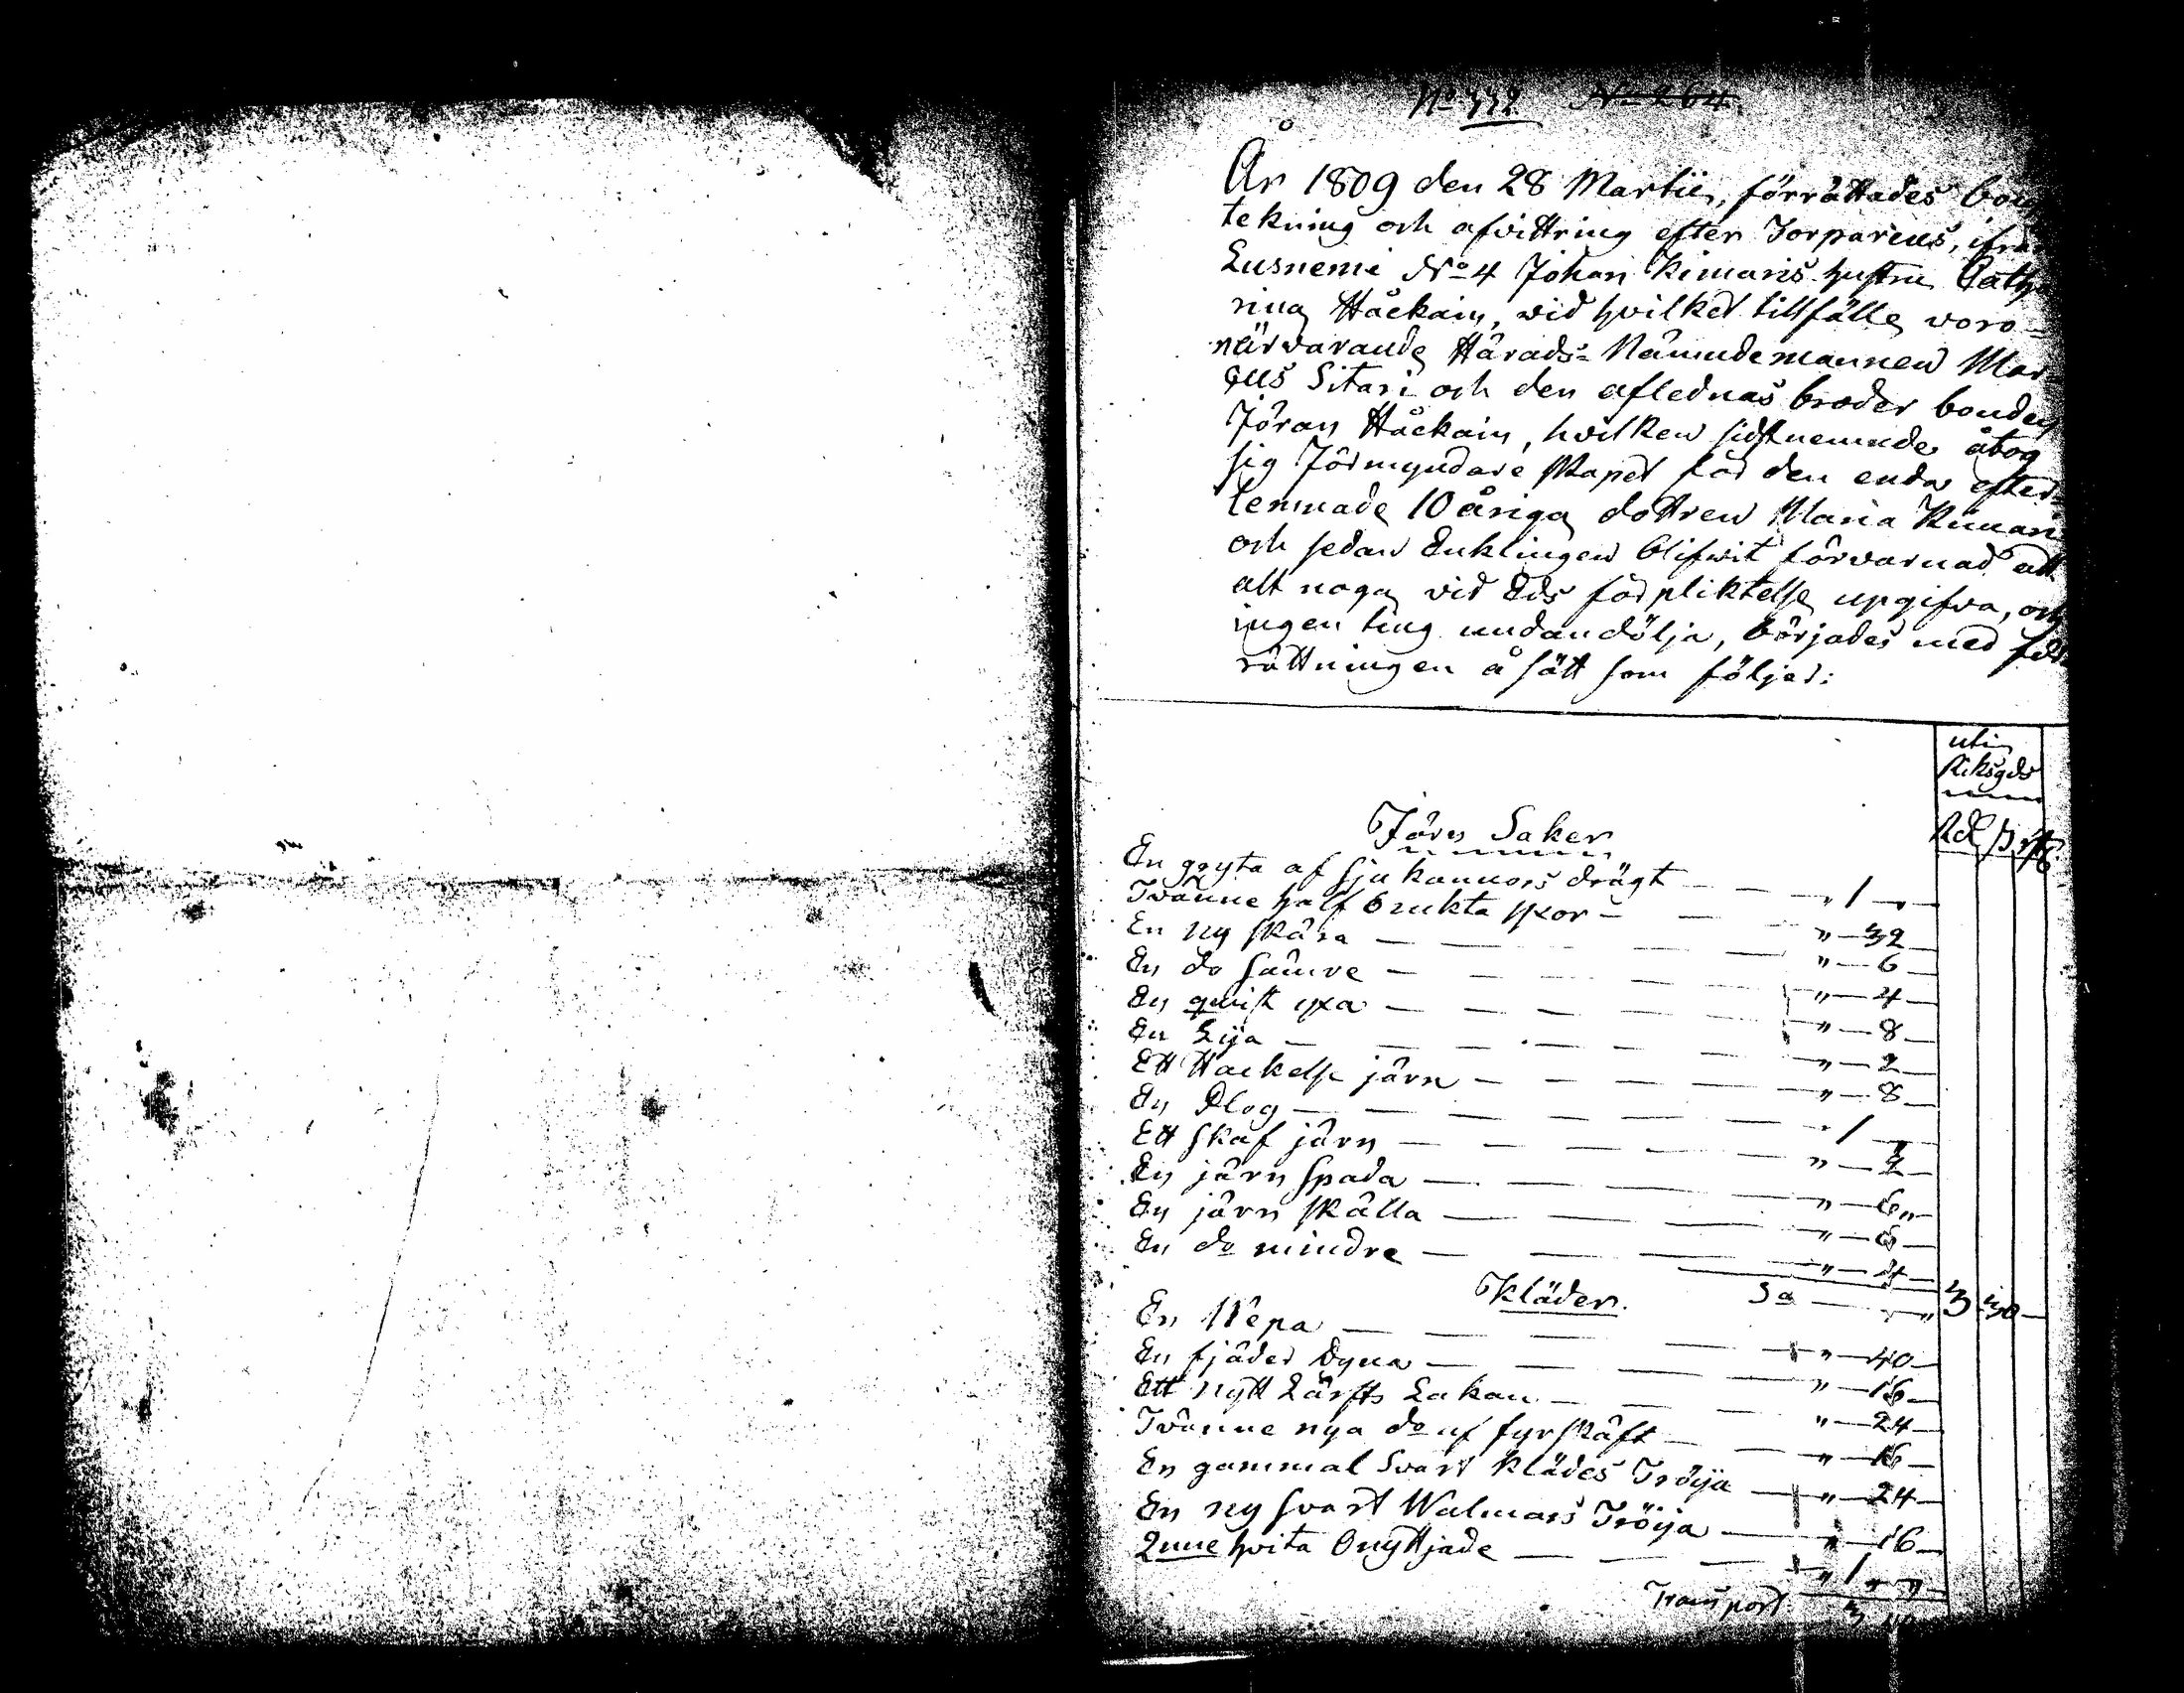 No 332 No 264
År 1809 den 28 Martii, förrättades bou
tekning och afvittring efter Torparens, ifrå
Lusnemi No 4 Johan Kimaris hustru Catha
rina Häckain, wid hvilket tillfälle voro
närvarande Härads- Nämndemannen Mar-
qus Sitari och den aflednas broder bonden
Jöran Häckain, hvilken sistnemnde åtog
sig Förmyndare skapet för den enda efter-
lemnade 10 åriga dottren Maria Kimari
och sedan Enklingen blifwit förvarnad att
alt noga vid Eds förpliktelse upgifva, och
ingen ting undandölja, börjades med för
rättningen å sätt som följer:
utj
Riksgds
Rdl ß rst
Järn Saker
En gryta af sju kannors drägt — " 1 "
Tvänne half brukta yxor — " 32
En ny skära — " 6
En do sämre — " 4
En quist yxa — " 8
En Lija — " 2
Ett Hackelse järn — " 8
En Plog — " 1 "
Ett skaf järn — " 2
En järn spada — " 6 "
En järn skälla — " 6
En do mindre — " 4
Sa — " 3 30
Kläder.
En Vepa — " 40
En fjäder dyna — " 16
Ett nytt Lärfts Lakan — " 24
Tvänne nya do af fyrskäft — " 16
En gammal Svart klädes Tröija — " 24
En ny svart Walmars Tröija — " 16
2nne hvita Onyttjade — " 1 " "
Transport. 3